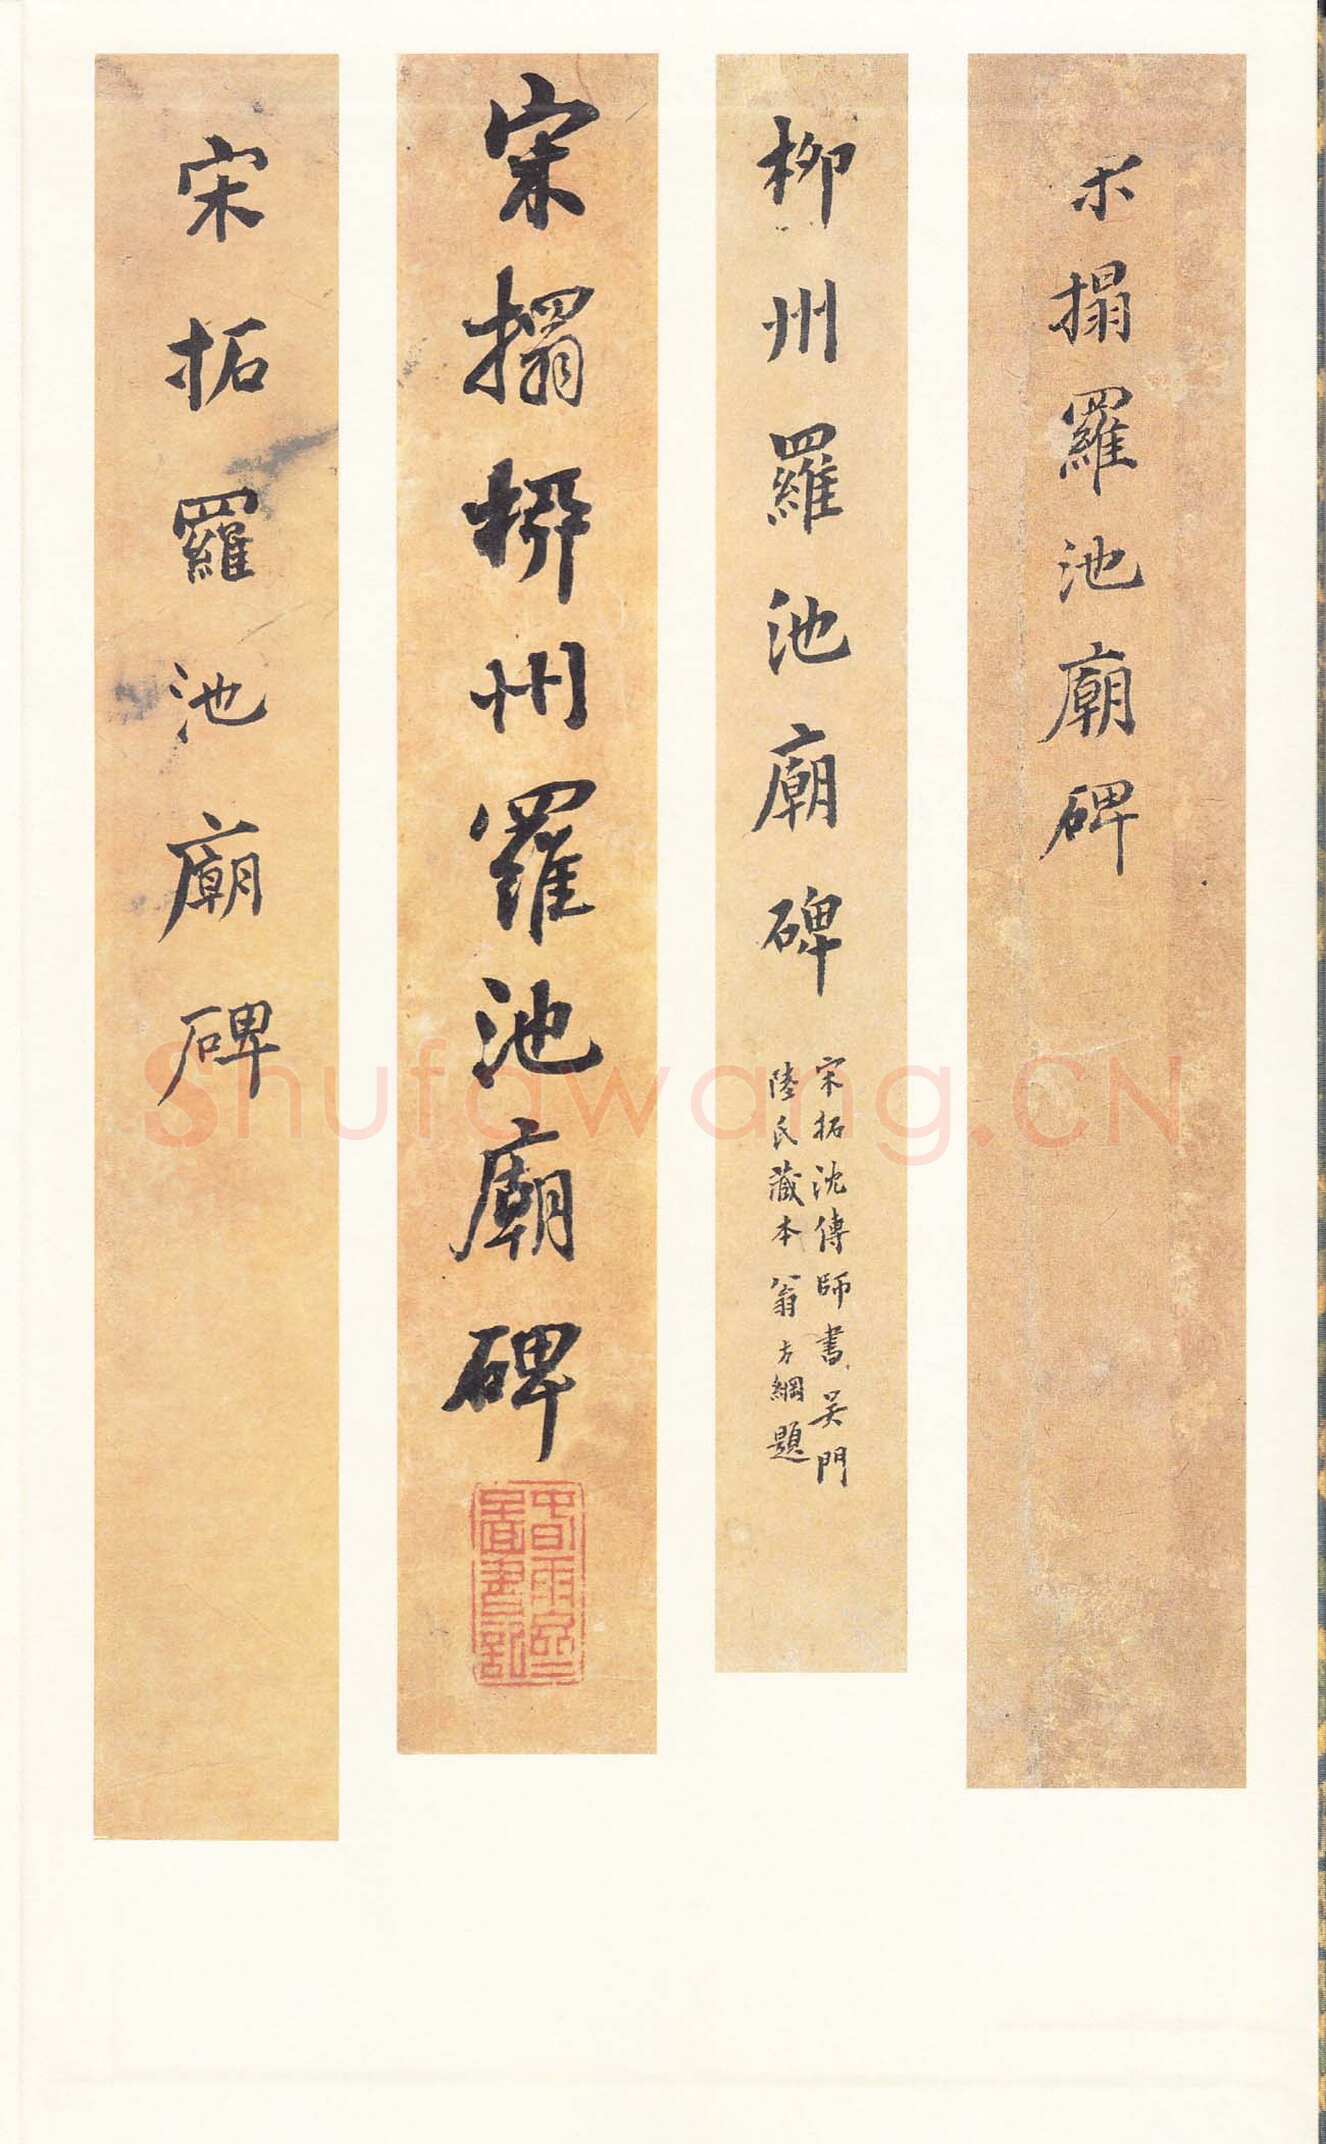 搨羅池廟碑
柳州羅池廟碑
宋拓沈傳師書吳門
陸氏藏本翁方綱題
宋搨柳州羅池廟碑
宋拓羅池廟碑
Shufawang.CN